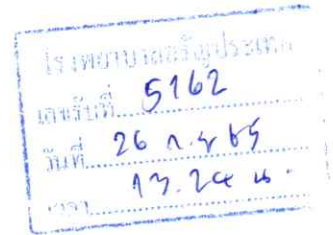 โรงพยาบาลอรัญประเทศ
เลขรับที่ 5162
วันที่ 26 ก.ย 65
เวลา 13.24 น.